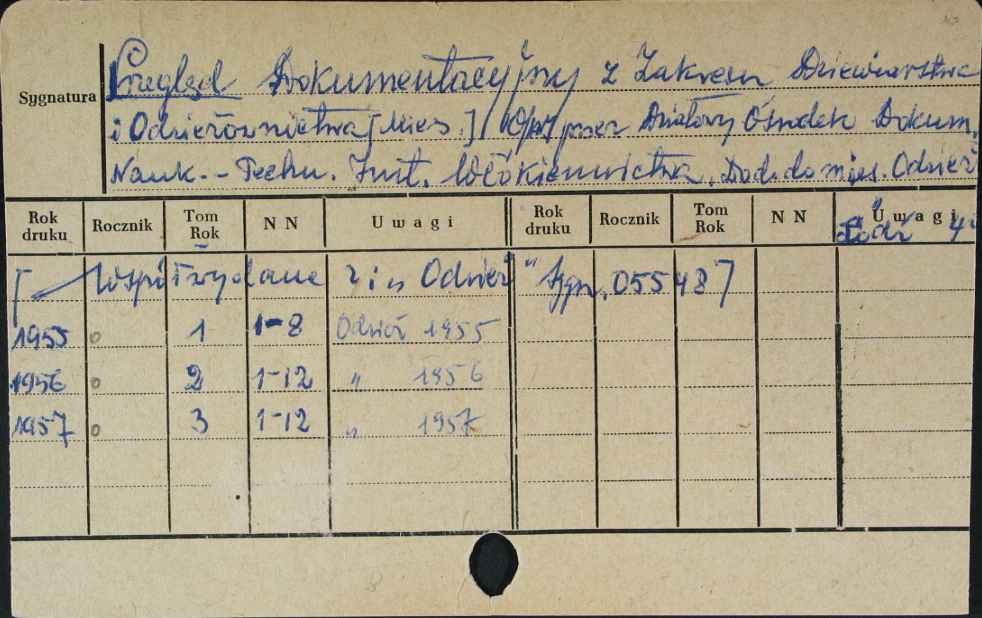 Przegląd Dokumentacyjny z Zakresu Dziewiarstwa
Sygnatura
i Odzieżownictwa [Mies.] Opr. przez Działowy Ośrodek Dokum.
Nauk.-Techn. Inst. Włókiennictwa. Dod. do mies. Odzież
Rok druku Rocznik Tom Rok N N Uwagi Rok druku Rocznik Tom Rok N N Uwagi
Łódź 4°
[Współwydane z : „Odzież" Sygn. 055487
1955 o 1 1-8 Odzież 1955
1956 o 2 1-12 " 1956
1957 o 3 1-12 " 1957